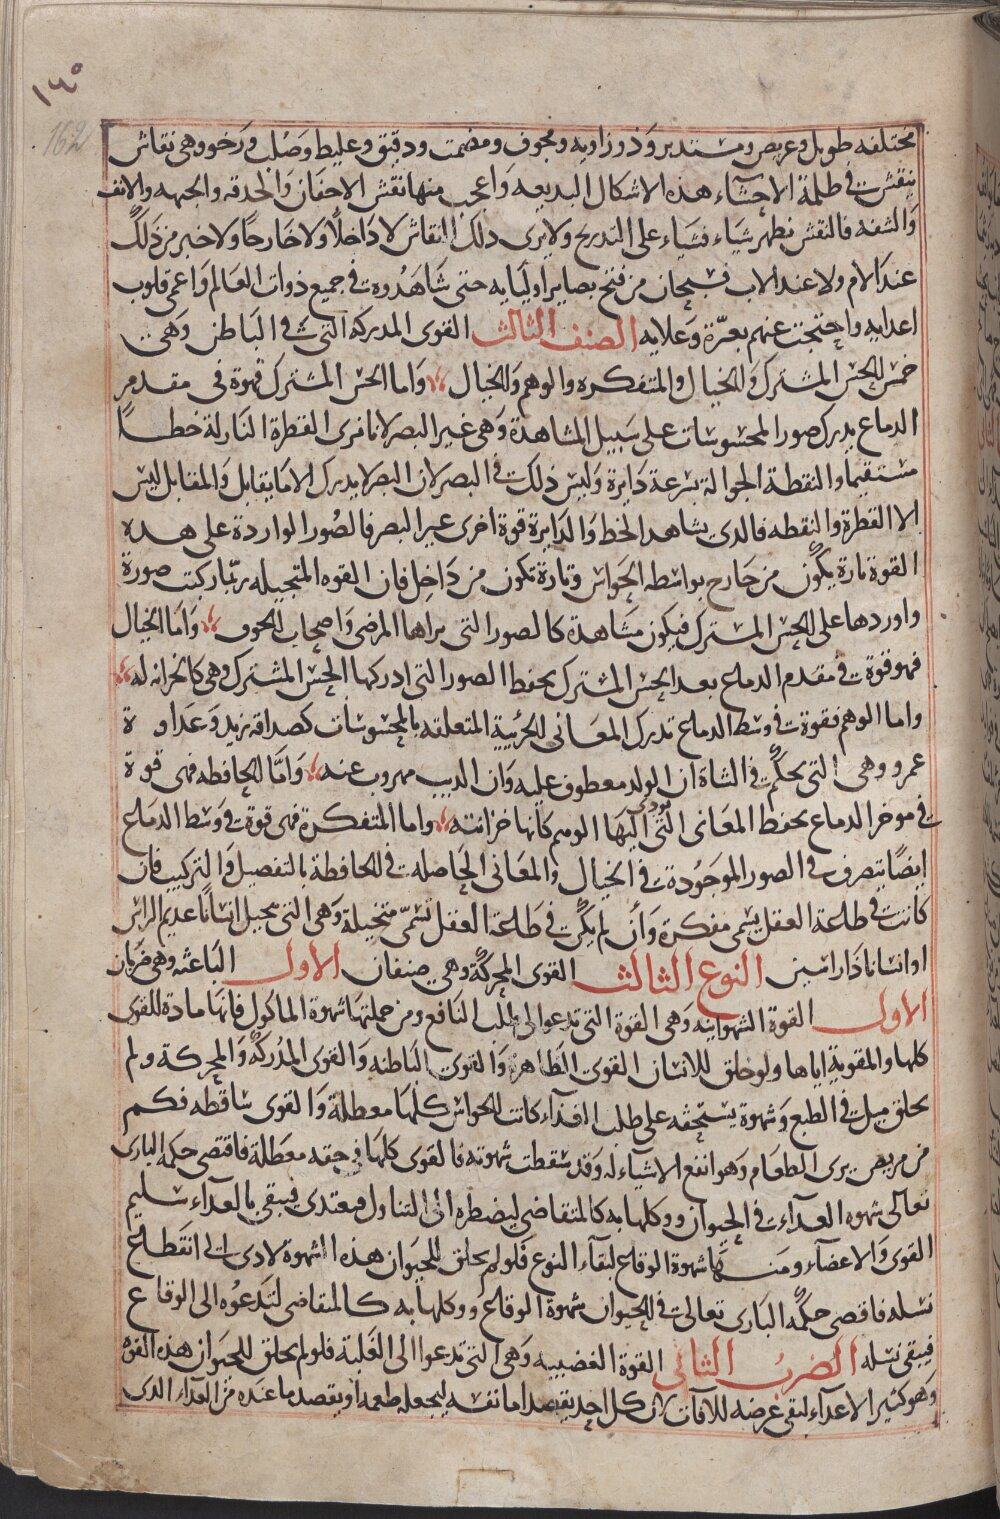 ١٤٥
162
مختلفه طويل وعريض ومستدير وذو زاويه ومجوف ومصمت ودقيق وغليط وصلب ورخو وهى نقاش
ينقش فى ظلمة الاحشآء هذه الاشكال البديعه واعجب منها نقش الاجفان والحدقه والجبهه والانف
والشفه فالنقش يظهر شياء فشياء على التدريج ولا يرى ذلك النقاش لا داخلًا ولا خارجًا ولا خبر من ذلك
عند الام ولا عند الاب فسبحان من فتح بصاير اوليايه حتى شاهدوه فى جميع ذوات العالم واعمى قلوب
اعدايه واحتجب عنهم بعزة وعلايه الصنف الثالث القوى المدركه التى فى الباطن وهى
خمس الحس المشترك والخيال والمتفكره والوهم والخيال واما الحس المشترك فهو قوة فى مقدم
الدماغ يدرك صور المحسوسات على سبيل المشاهدة وهى غير البصر لانا نرى القطرة النازلة خطـا
مستقيما والنقطة الجوالة بسرعة دايرة وليس ذلك فى البصر لان البصر لا يدرك الا ما يقابل والمقابل ليس
الا القطرة والنقطه فالدى يشاهد الخط والدايرة قوة اخرى غير البصر فالصور الواردة على هذه
القوة تارة يكون من خارج بواسطه الحواس وتارة تكون من داخل فان القوه المتخيله ربما ركبت صورة
واوردها على الحس المسترك فيكون مشاهدة كالصور التى يراها المرضى واصحاب الخوف واما الخيال
فهو قوة فى مقدم الدماغ بعد الحس المشترك يحفظ الصور التى ادركها الحس المشترك وهى كالخزانه له
واما الوهم فقوة فى وسط الدماغ تدرك المعانى الجزييه المتعلقه بالمحسوسات كصداقه زيد وعداوة
عمرو وهى التى يحكم فى الشاة ان الولد معطوف عليه وان الديب مهروب عنه واما الحافظه فهى قوة
فى موخر الدماغ يحفظ المعانى التى يودى اليها الوهم كانها خزانته واما المتفكرة فهى قوة فى وسط الدماغ
ايضًا يتصرف فى الصور الموجودة فى الخيال والمعانى الحاصله فى الحافظة بالتفصيل والتركيب فان
كانت فى طاعة العقل يسمى مفكرة وان لم يكن فى طاعة العقل تسمى متخيلة وهى التى يحيل انسانًا عديم الراس
او انسانا ذا راسين النوع الثالث القوى المحركة وهى صنفان الاول الباعثه وهى ضربان
الاول القوة الشهوانيه وهى القوة التى تدعو الى طلب النافع ومن جملتها شهوة الماكول فانها مادة للقوى
كلها والمقوية اياها ولو خلق للانسان القوى الظاهرة والقوى الباطنه والقوى المدركه والمحركة ولم
يخلق ميل فى الطبع وشهوة يستحثه على طلب الغدآء كانت الحواس كلها معطلة والقوى ساقطه فكم
من مريض يرى الطعام وهو انفع الاشياء له وقد سقطت شهوته فالقوى كلها فى حقه معطلة فاقتضى حكمه البارى
تعالى شهوه الغدآء فى الحيوان ووكلها به كالمتقاضى ليضطره الى التناول فيغتدى فيبقى بالغدآء سليم
القوى والاعضآء ومنها شهوة الوقاع لبقآء النوع فلو لم يخلق للحيوان هذه الشهوة لادى الى انقطاع
نسله فاقضى حكمه البارى تعالى فى الحيوان شهوة الوقاع ووكلها به كالمتقاضى لتدعوه الى الوقاع
فيبقى نسله الضرب الثانى القوة الغضبيه وهى التى تدعوا الى الغلبة فلو لم يخلق للحيوان هذه القوة
وهو كثير الاعدآء لبقى عرضه للافات لان كل احد يقصد اما نفسه ليجعله طعمه او يقصد ما عنده من الغدآء الدى